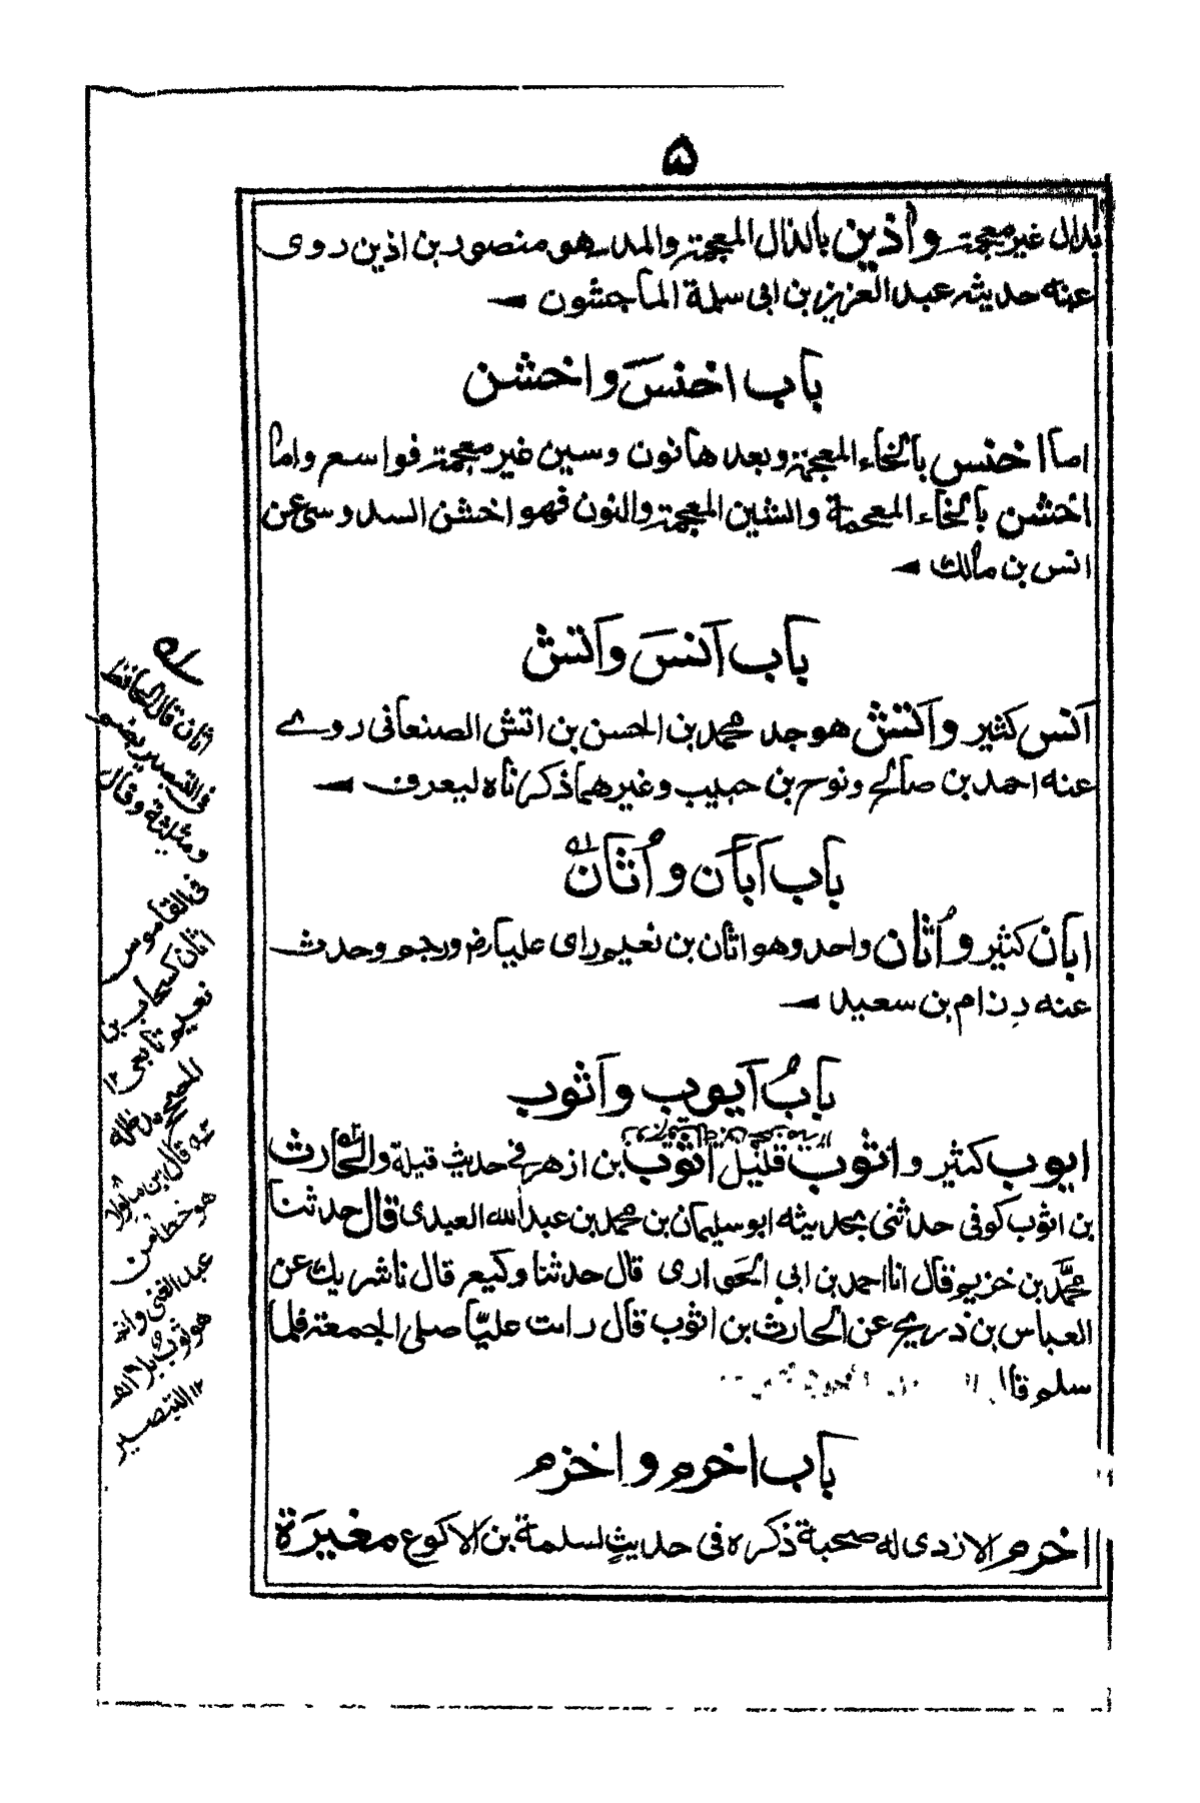 ۵
بدال غير معجمة وآذين بالذال المعجمة والمد هو منصور بن اذين روى
عنه حديثه عبد العزيز بن ابى سلمة الماجشون
باب اخنس واخشن
اما اخنس بالخاء المعجمة وبعدها نون وسين غير معجمة فواسع واما
اخشن بالخاء المعجمة والشين المعجمة والنون فهو اخشن السدوسى عن
انس بن مالك
باب آنس واتش
آنس كثير واتش هو جد محمد بن الحسن بن اتش الصنعانى روے
عنه احمد بن صالح ونوح بن حبيب وغيرهما ذكرناه ليعرف
باب ابان واُثان
ابان كثير واُثان واحد وهو اثان بن نعيم راى عليا رض ورجم وحدث
عنه رزام بن سعيد
بابُ ايوب واثوب
ايوب كثير واثوب قليل اثوب بن ازهر فى حديث قيلة والحارث
بن اثوب كوفى حدثنى بحديثه ابو سليمان بن محمد بن عبد الله العبدى قال حدثنا
محمد بن خزيم قال انا احمد بن ابي الحوارى قال حدثنا وكيع قال نا شريك عن
العباس بن ذريح عن الحارث بن اثوب قال رات عليّا صلى الجمعة فلما
سلم قال
باب اخرم واخزم
اخرم الازدى له صحبة ذكره فى حديثٍ لسلمة بن الاكوع مغيرة
اثان قال الحافظ
فى التبصير بضم
ومثلثة وقال
فى القاموس
اثان كسحاب بن
نعيم تابعى ١٢
قال بن ماكولا
هو خطا من
عبد الغنى وانه
هو ثوب بلا الف
١٢ التبصير